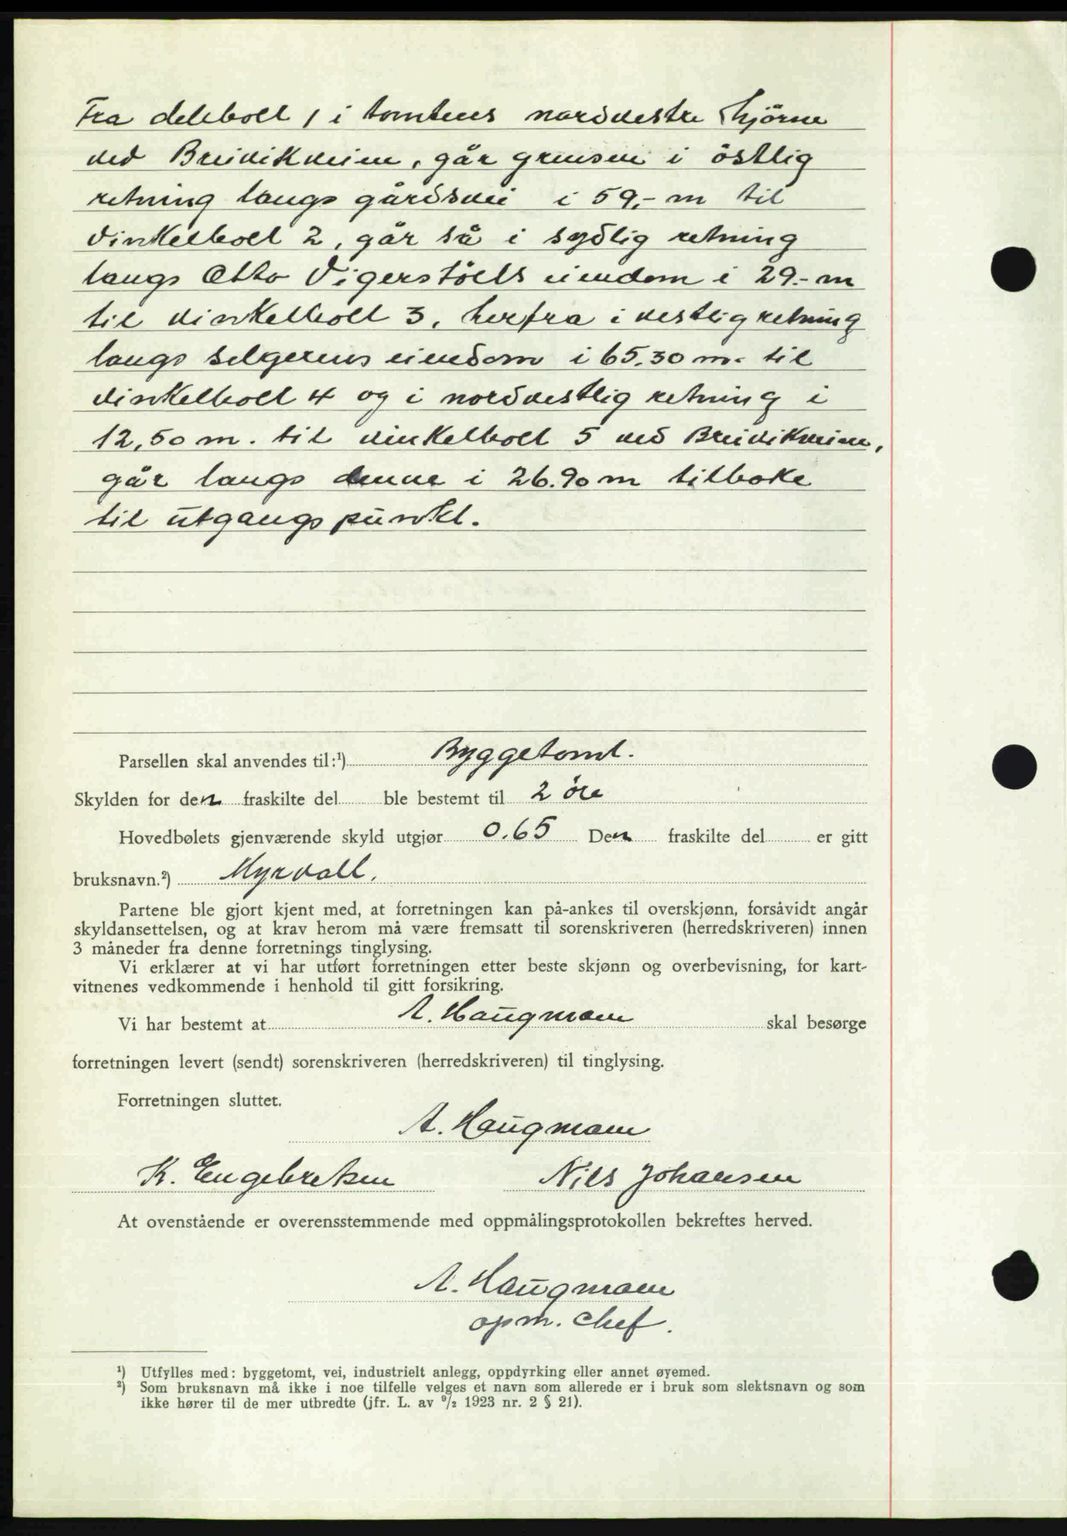 Fra delebolt 1 i tomtens nordvestre hjörne
ved Breivikveien, går grensen i östlig
retning langs gårdsvei i 59,- m til
vinkelbolt 2, går så i sydlig retning
langs Otto Vigerstöls eiendom i 29.- m
til vinkelbolt 3, herfra i vestlig retning
langs selgerens eiendom i 65.30 m. til
vinkelbolt 4 og i nordvestlig retning i
12,50 m. til vinkelbolt 5 ved Breivikveien,
går langs denne i 26.90 m tilbake
til utgangspunkt.
Parsellen skal anvendes til:¹) Byggetomt.
Skylden for den fraskilte del ble bestemt til 2 öre
Hovedbølets gjenværende skyld utgjør 0.65 Den fraskilte del er gitt
bruksnavn.²) Myrvoll.
Partene ble gjort kjent med, at forretningen kan på-ankes til overskjønn, forsåvidt angår
skyldansettelsen, og at krav herom må være fremsatt til sorenskriveren (herredskriveren) innen
3 måneder fra denne forretnings tinglysing.
Vi erklærer at vi har utført forretningen etter beste skjønn og overbevisning, for kart-
vitnenes vedkommende i henhold til gitt forsikring.
Vi har bestemt at A. Haugmoen skal besørge
forretningen levert (sendt) sorenskriveren (herredskriveren) til tinglysing.
Forretningen sluttet.
A. Haugmoen
K. Engebretsen Nils Johansen
At ovenstående er overensstemmende med oppmålingsprotokollen bekreftes herved.
A. Haugmoen
opm. chef.
¹) Utfylles med: byggetomt, vei, industrielt anlegg, oppdyrking eller annet øyemed.
²) Som bruksnavn må ikke i noe tilfelle velges et navn som allerede er i bruk som slektsnavn og som
ikke hører til de mer utbredte (jfr. L. av ⁹/₂ 1923 nr. 2 § 21).